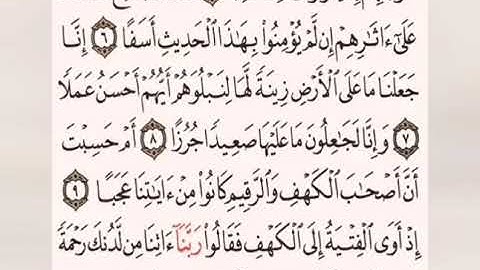 عَلَىٰٓ ءَاثَٰرِهِمْ إِن لَّمْ يُؤْمِنُوا۟ بِهَٰذَا ٱلْحَدِيثِ أَسَفًا ٦ إِنَّا
جَعَلْنَا مَا عَلَى ٱلْأَرْضِ زِينَةً لَّهَا لِنَبْلُوَهُمْ أَيُّهُمْ أَحْسَنُ عَمَلًا
٧ وَإِنَّا لَجَٰعِلُونَ مَا عَلَيْهَا صَعِيدًا جُرُزًا ٨ أَمْ حَسِبْتَ
أَنَّ أَصْحَٰبَ ٱلْكَهْفِ وَٱلرَّقِيمِ كَانُوا۟ مِنْ ءَايَٰتِنَا عَجَبًا ٩
إِذْ أَوَى ٱلْفِتْيَةُ إِلَى ٱلْكَهْفِ فَقَالُوا۟ رَبَّنَآ ءَاتِنَا مِن لَّدُنكَ رَحْمَةً